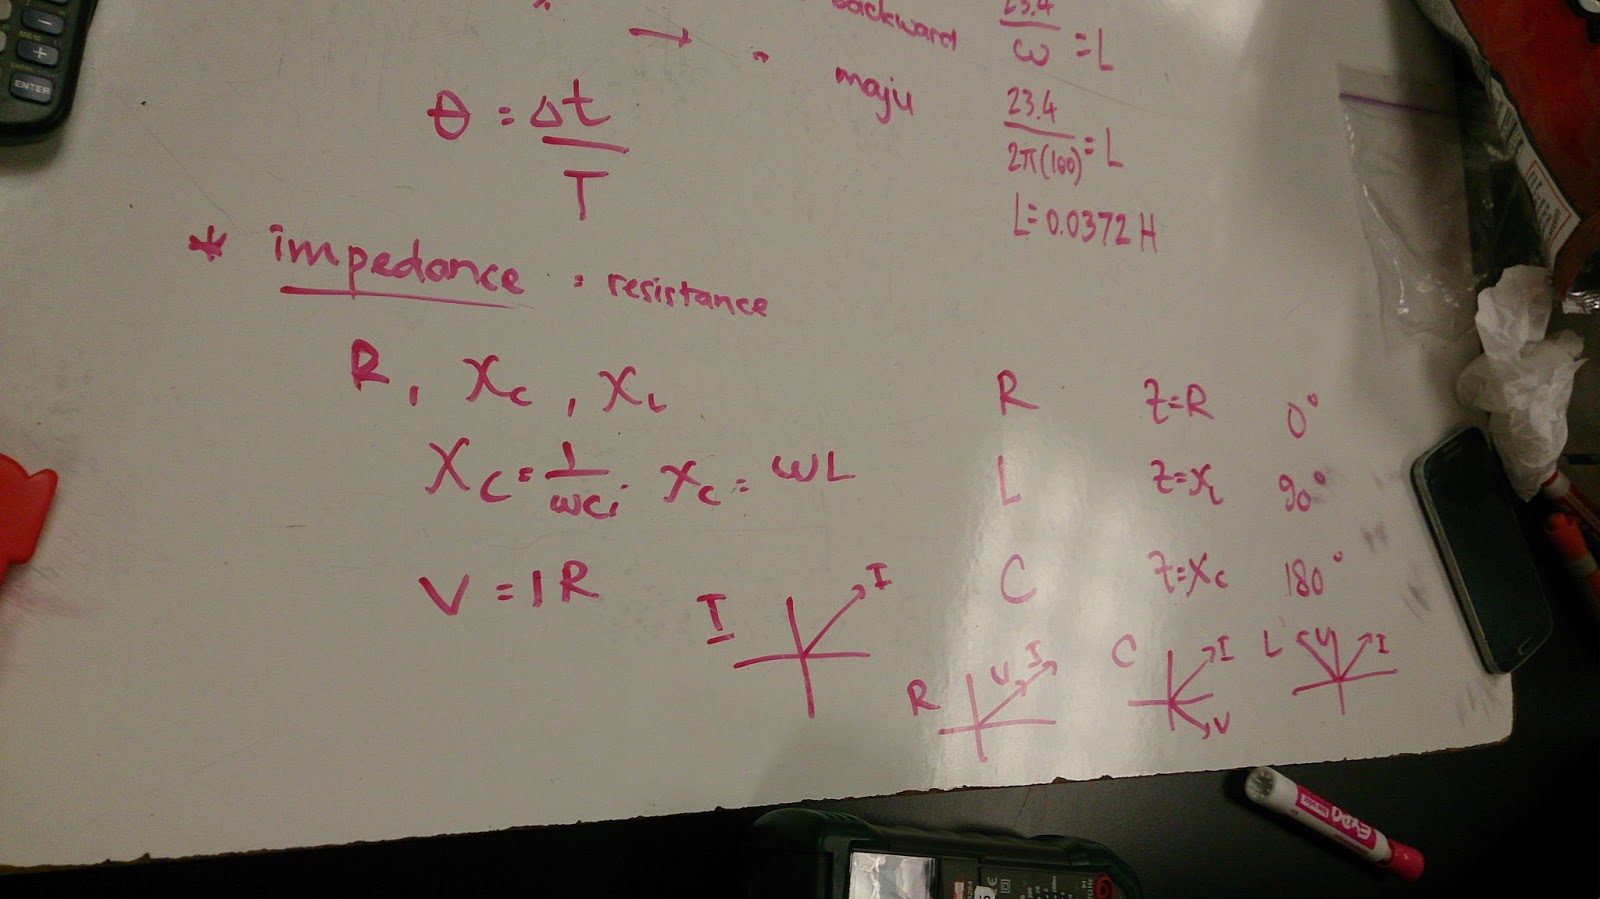 backward
23.4
ω = L
maju
θ = Δt
T
23.4
2π(100) = L
L = 0.0372 H
* impedance : resistance
R, Xc, XL
Xc = 1
ωC; Xc = ωL
V = IR
R Z=R 0°
L Z=XL 90°
C Z=Xc 180°
I I
R V I
C I V
L V I
ENTER
EXPO